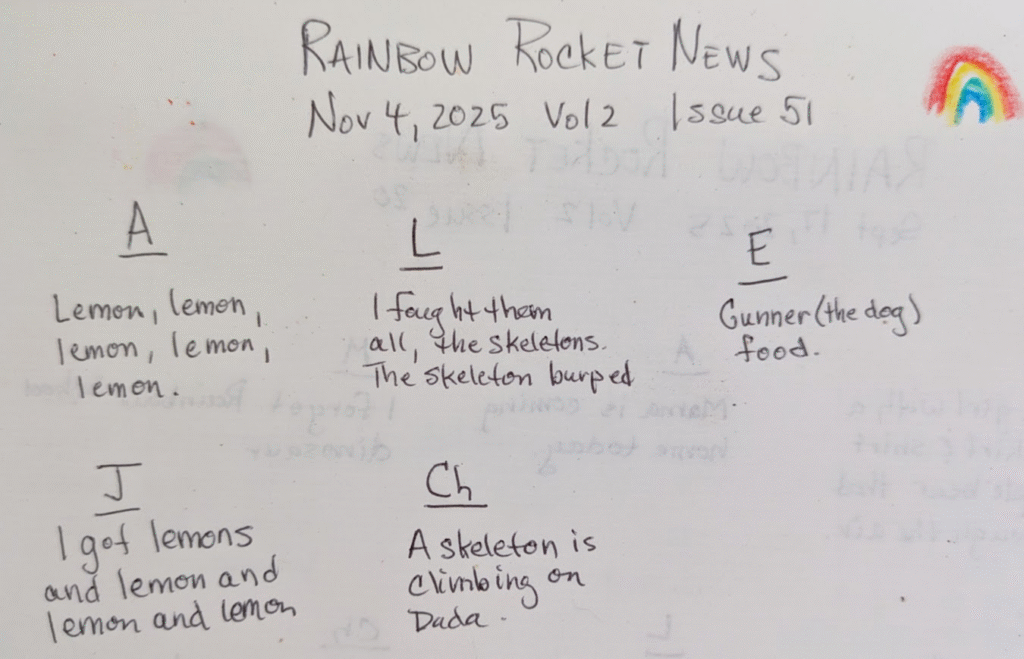 RAINBOW ROCKET NEWS
Nov 4, 2025 Vol 2 Issue 51
A
Lemon, lemon,
lemon, lemon,
lemon.
L
I fought them
all, the skeletons.
The skeleton burped
E
Gunner (the dog)
food.
J
I got lemons
and lemon and
lemon and lemon
Ch
A skeleton is
climbing on
Dada.